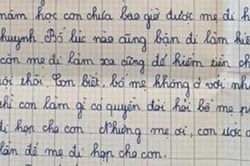 năm học con chưa bao giờ được mẹ đi h
huynh Bố lúc nào cũng bận đi làm kiế
còn mẹ đi làm xa cũng để kiếm tiền ch
nơi thôi. Con biết, bố mẹ không ở với nh
thì con làm gì có quyền đòi hỏi bố mẹ p
đi họp cho con. Nhưng mẹ ơi, con ước
lần để mẹ đi họp cho con.